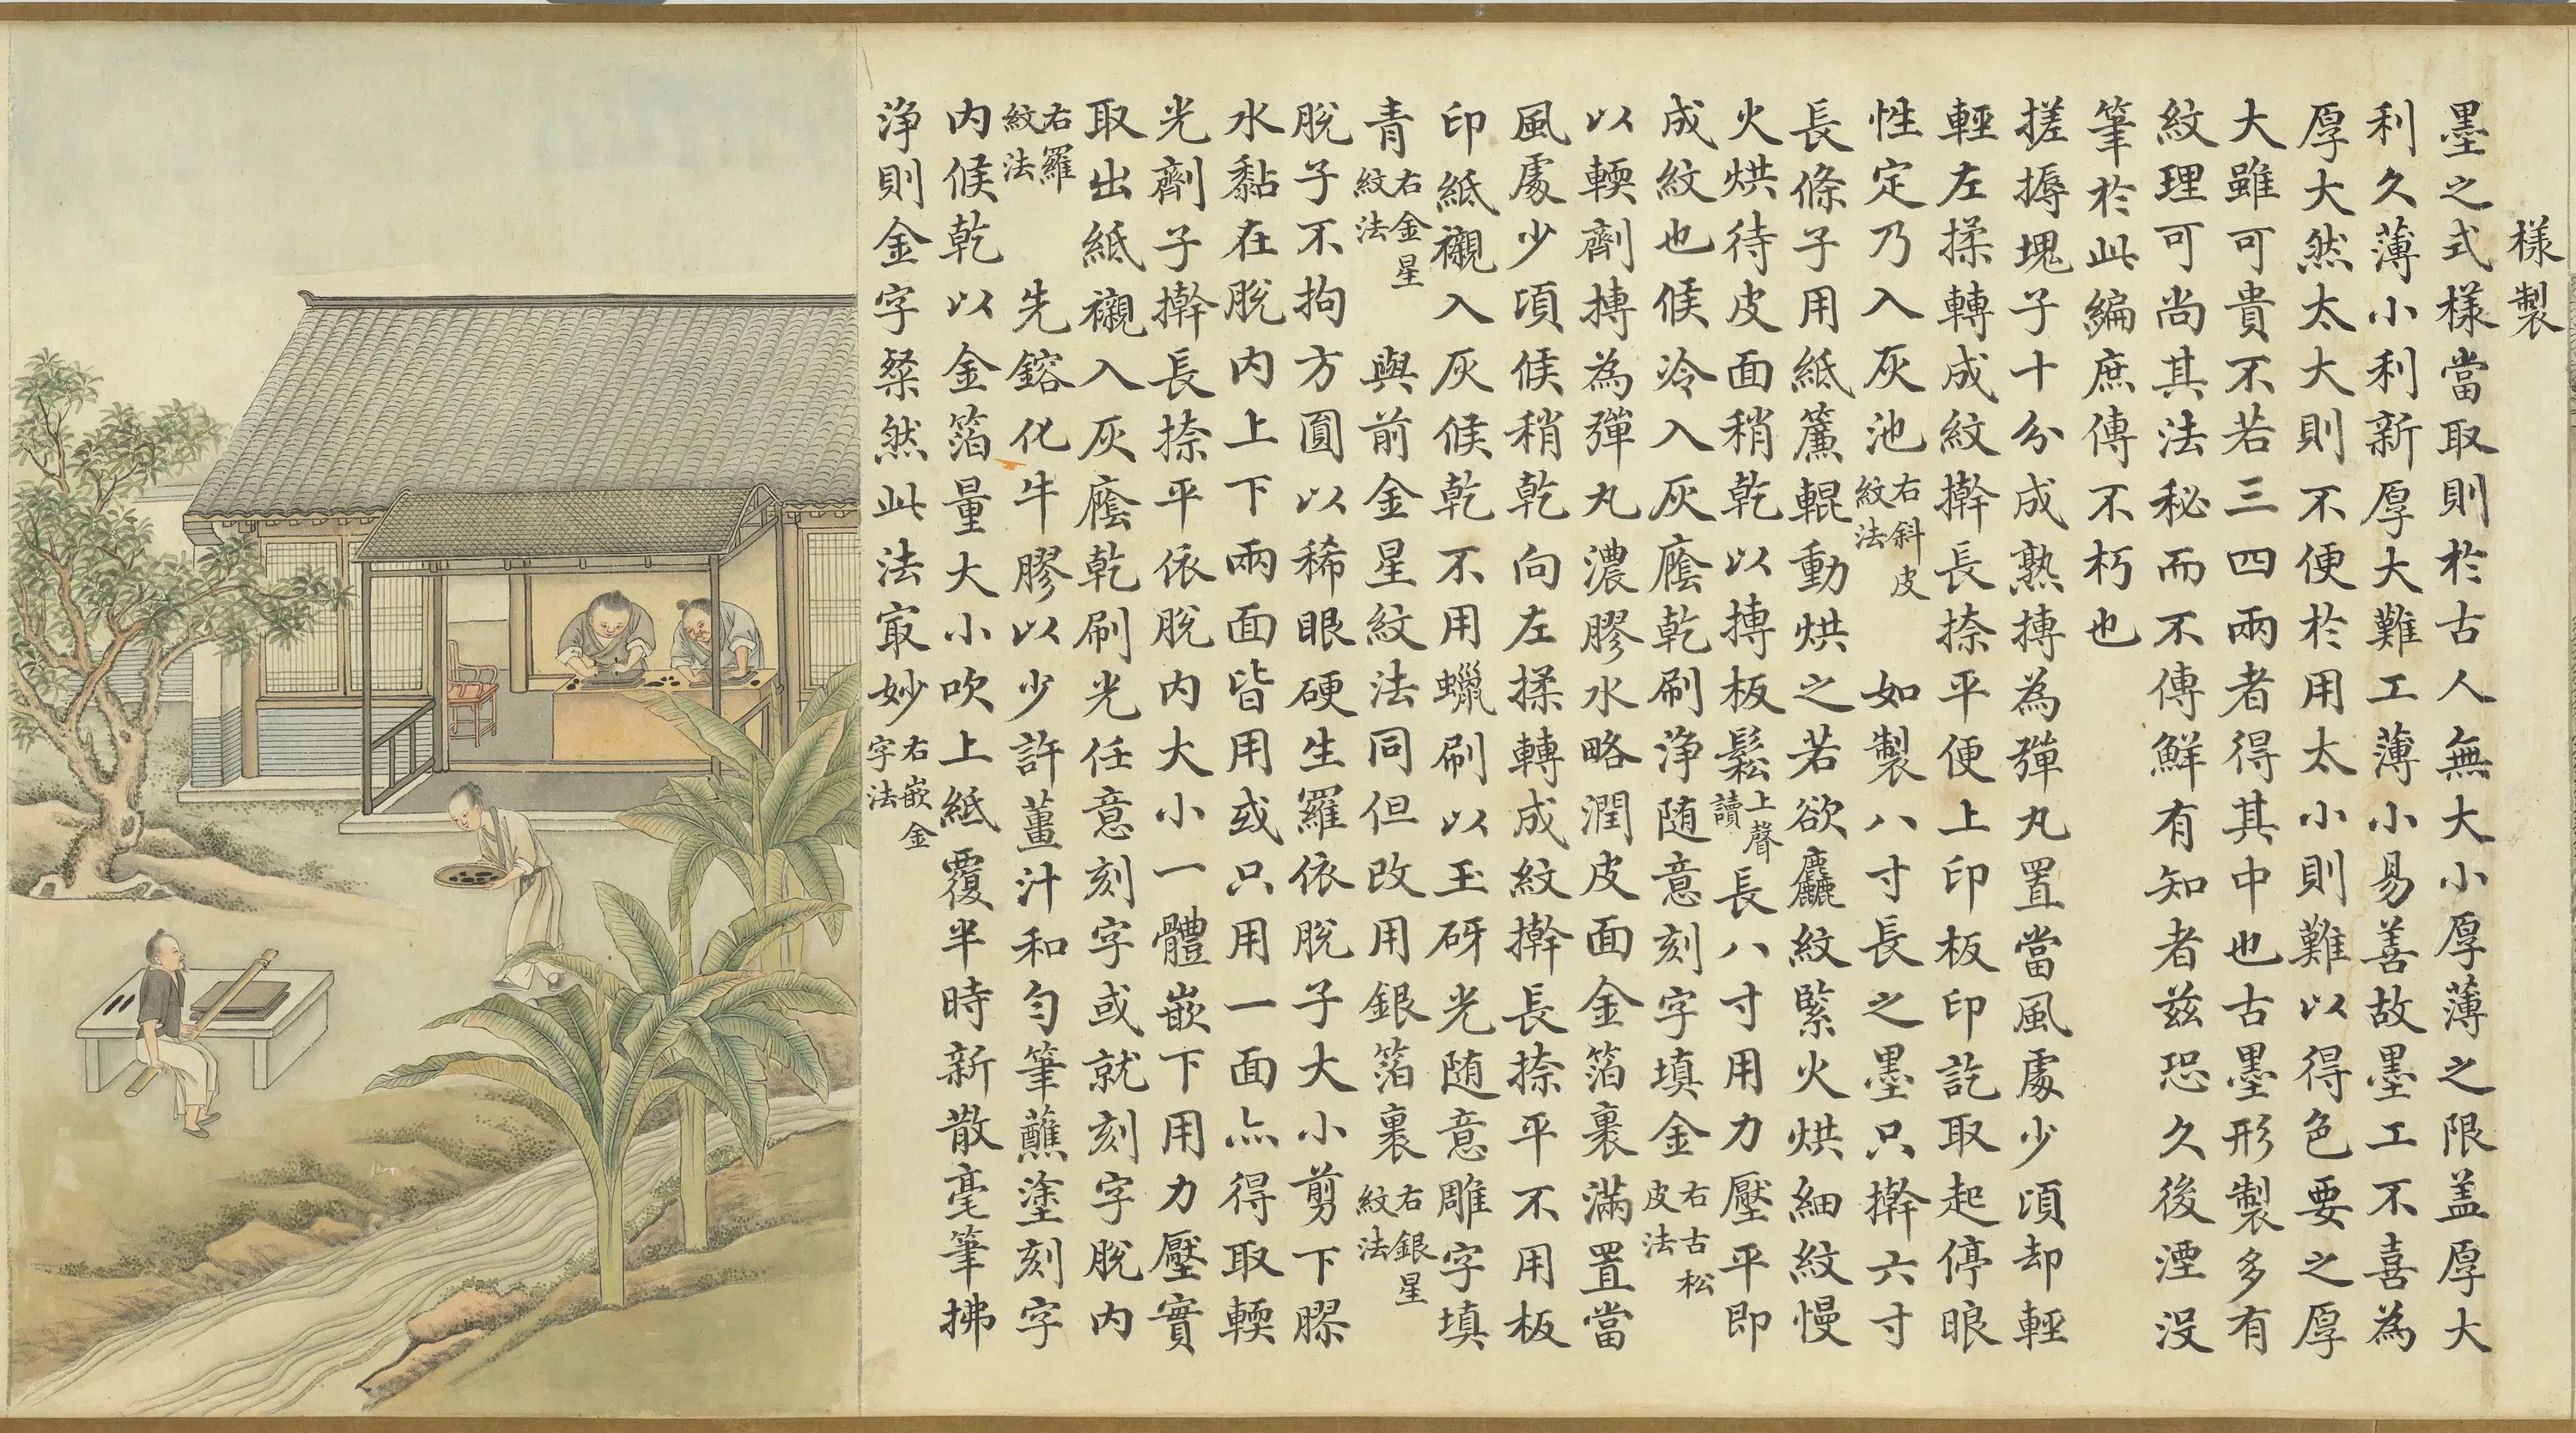 樣製
墨之式樣當取則於古人無大小厚薄之限盖厚大
利久薄小利新厚大難工薄小易善故墨工不喜為
厚大然太大則不便於用太小則難以得色要之厚
大雖可貴不若三四兩者得其中也古墨形製多有
紋理可尚其法秘而不傳鮮有知者兹恐久後湮没
筆於此編庶傳不朽也
搓搙塊子十分成熟摶為彈丸置當風處少頃却輕
輕左揉轉成紋擀長捺平便上印板印訖取起停眼
性定乃入灰池右斜皮紋法 如製八寸長之墨只擀六寸
長條子用紙簾輥動烘之若欲麤紋緊火烘細紋慢
火烘待皮面稍乾以摶板鬆上聲讀長八寸用力壓平即
成紋也候冷入灰廕乾刷浄随意刻字填金右古松皮法
以輭劑摶為彈丸濃膠水略潤皮面金箔裹滿置當
風處少頃候稍乾向左揉轉成紋擀長捺平不用板
印紙襯入灰候乾不用蠟刷以玉砑光随意雕字填
青右金星紋法 與前金星紋法同但改用銀箔裹右銀星紋法
脫子不拘方圓以稀眼硬生羅依脫子大小剪下膠
水黏在脫内上下兩面皆用或只用一面亦得取輭
光劑子擀長捺平依脫内大小一體嵌下用力壓實
取出紙襯入灰廕乾刷光任意刻字或就刻字脫内
右羅紋法 先鎔化牛膠以少許薑汁和勻筆蘸塗刻字
内候乾以金箔量大小吹上紙覆半時新散毫筆拂
浄則金字粲然此法㝡妙右嵌金字法